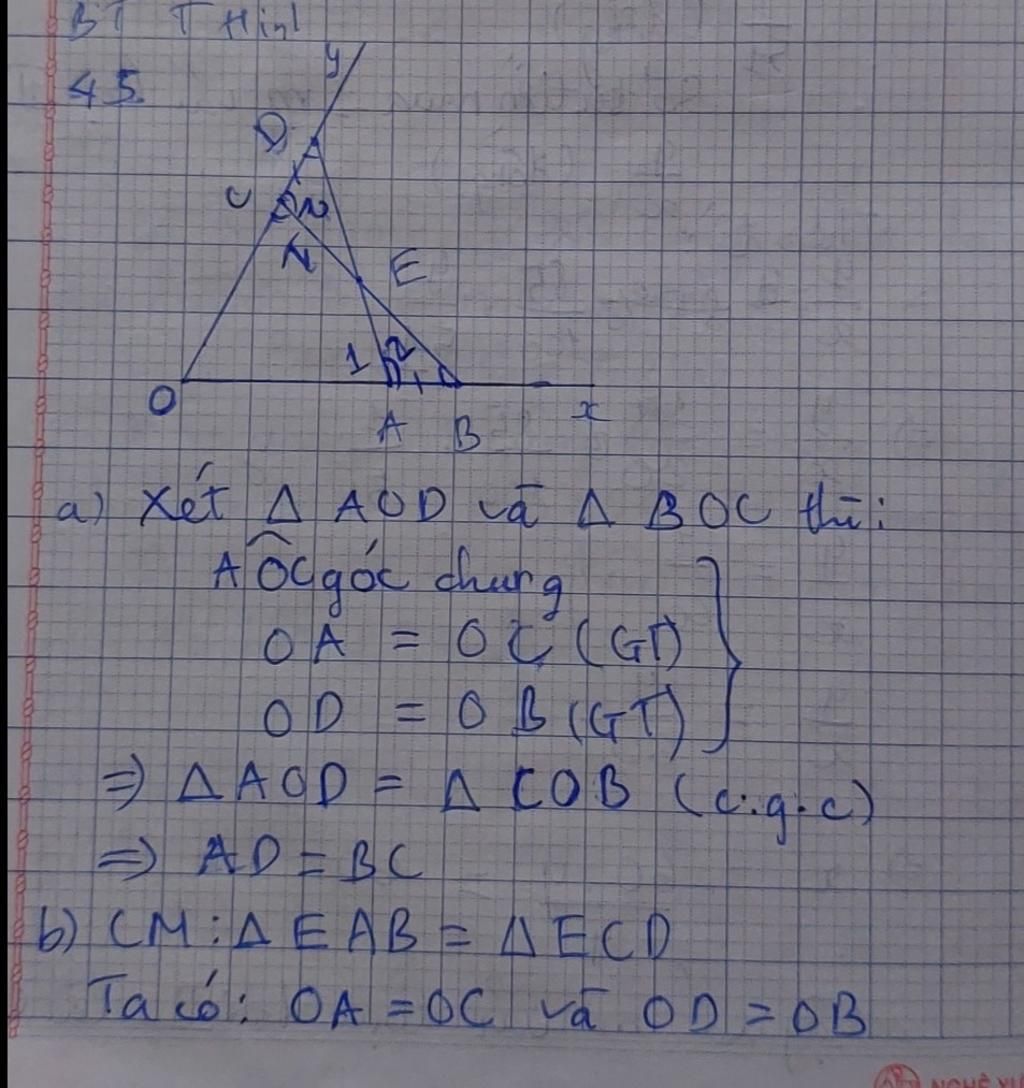 BT T Hinl
y
45.
D
C
2
1
E
1 2
O
A B
x
a) Xét Δ AOD và Δ BOC thì:
AÔC góc chung
OA = OC (GT)
OD = OB (GT)
⇒ Δ AOD = Δ COB (c.g.c)
⇒ AD = BC
b) CM: Δ EAB = Δ ECD
Ta có: OA = OC và OD = OB